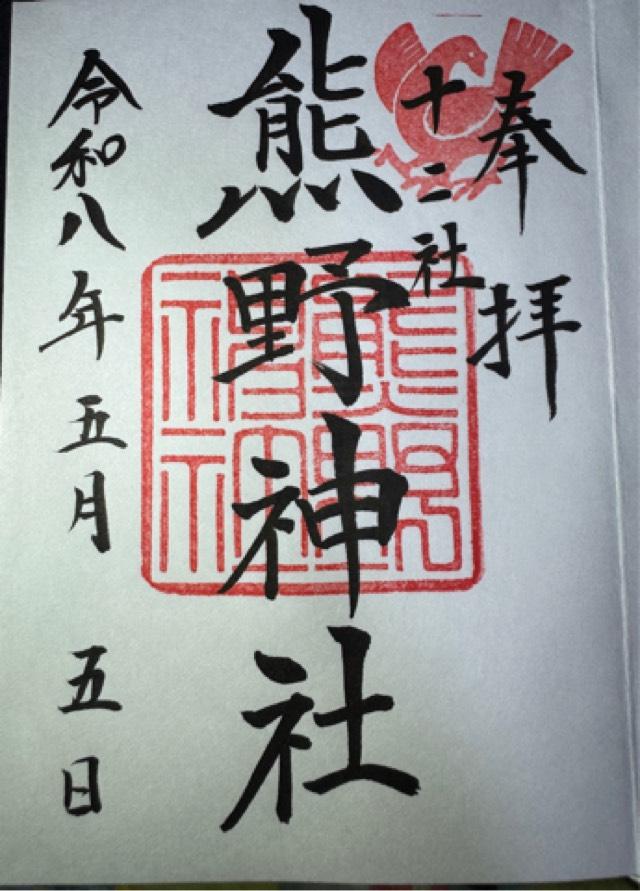 奉拝
十二社
熊野神社
令和八年五月五日